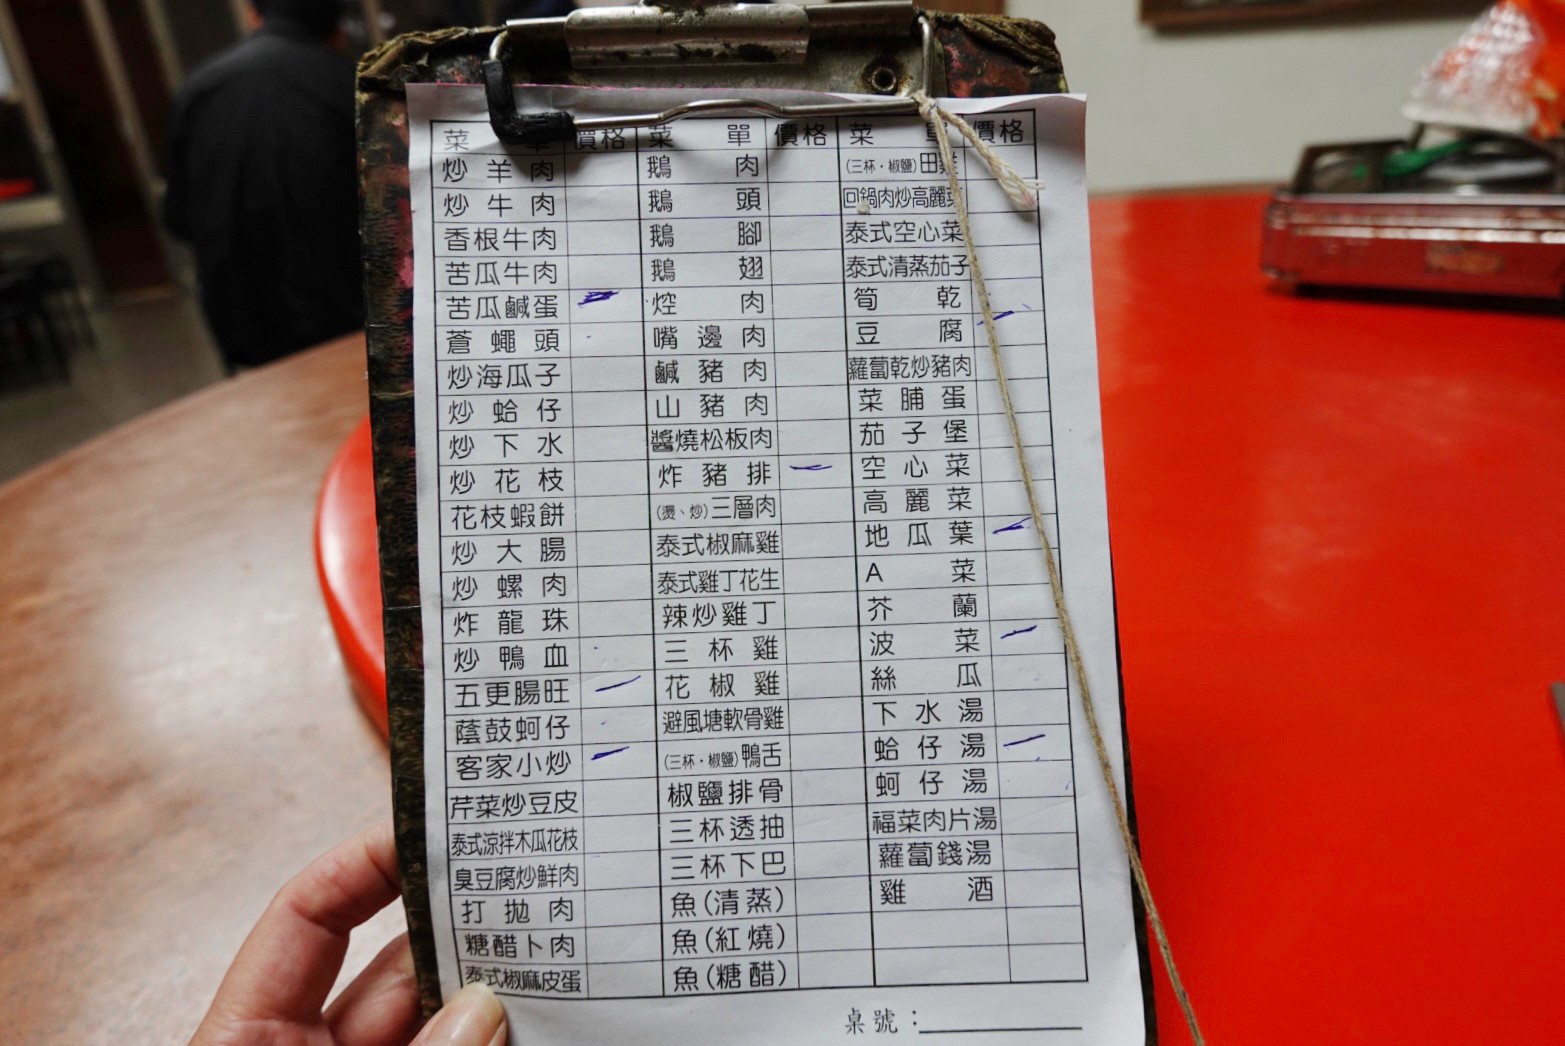 菜 單 價格 菜 單 價格 菜 單 價格
炒羊肉 鵝肉 (三杯・椒鹽)田雞
炒牛肉 鵝頭 回鍋肉炒高麗菜
香根牛肉 鵝腳 泰式空心菜
苦瓜牛肉 鵝翅 泰式清蒸茄子
苦瓜鹹蛋 焢肉 筍乾
蒼蠅頭 嘴邊肉 豆腐
炒海瓜子 鹹豬肉 蘿蔔乾炒豬肉
炒蛤仔 山豬肉 菜脯蛋
炒下水 醬燒松板肉 茄子堡
炒花枝 炸豬排 空心菜
花枝蝦餅 (燙、炒)三層肉 高麗菜
炒大腸 泰式椒麻雞 地瓜葉
炒螺肉 泰式雞丁花生 A菜
炸龍珠 辣炒雞丁 芥蘭
炒鴨血 三杯雞 波菜
五更腸旺 花椒雞 絲瓜
蔭鼓蚵仔 避風塘軟骨雞 下水湯
客家小炒 (三杯・椒鹽)鴨舌 蛤仔湯
芹菜炒豆皮 椒鹽排骨 蚵仔湯
泰式涼拌木瓜花枝 三杯透抽 福菜肉片湯
臭豆腐炒鮮肉 三杯下巴 蘿蔔錢湯
打拋肉 魚(清蒸) 雞酒
糖醋卜肉 魚(紅燒)
泰式椒麻皮蛋 魚(糖醋)
桌號：